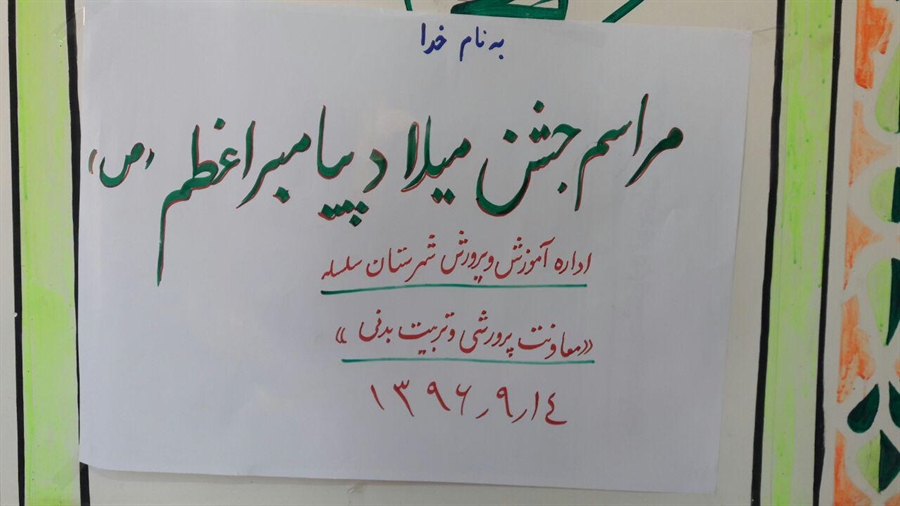 به نام خدا
مراسم جشن میلاد پیامبر اعظم (ص)
اداره آموزش و پرورش شهرستان سلسله
«معاونت پرورشی و تربیت بدنی»
۱۳۹۶٫۹٫۱٤